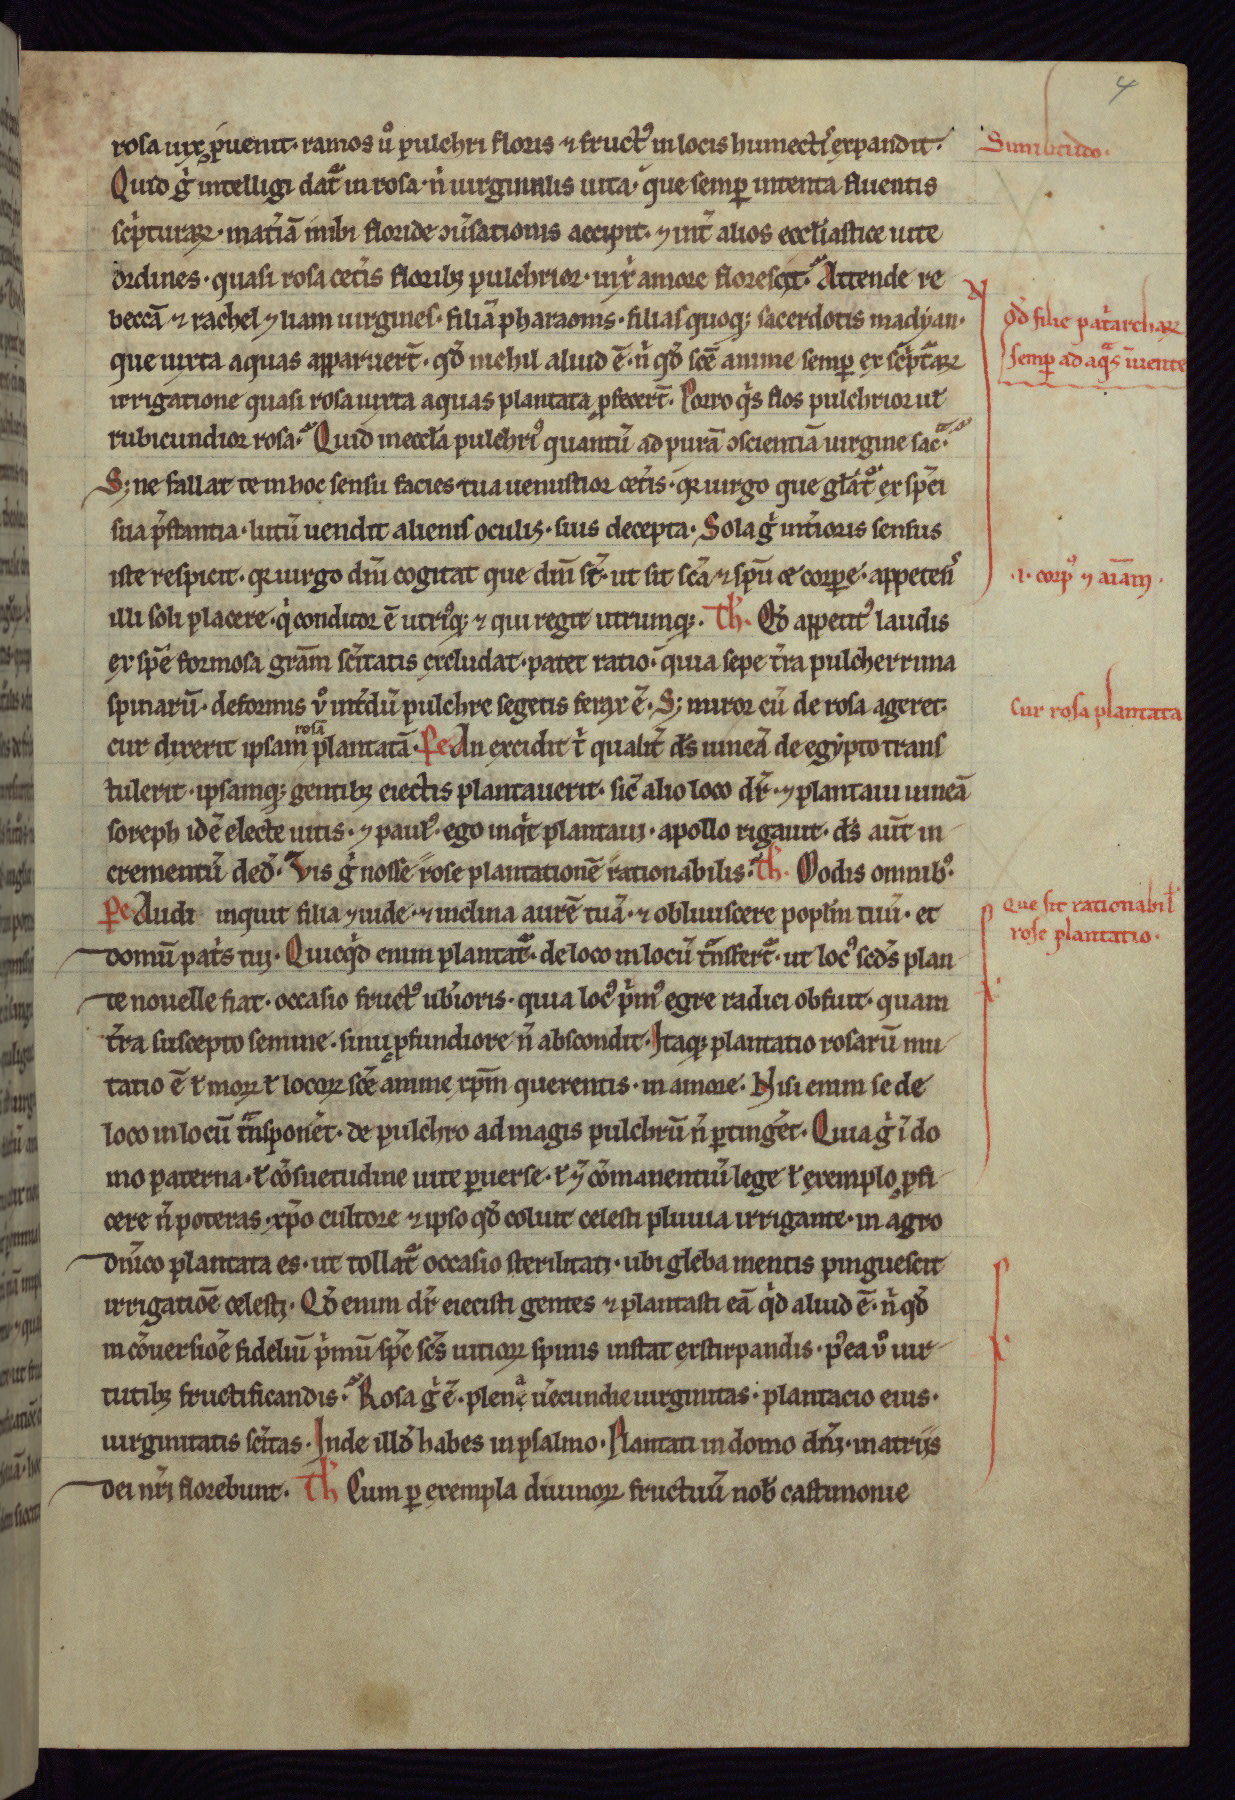 4
rosa uix ꝓuenit· ramos uͦ pulchri floris ⁊ fructꝰ in locis humectis expandit·
Similitudo·
Quid gͥ intelligi datᷣ in rosa· nͥ uirginalis uita· que semꝑ intenta fluentis
scͥpturaꝝ· matͥiā inibi floride ↄuͥsationis accipit· ⁊ intͥ alios eccl̄iastice uite
ordines· quasi rosa cetͥis floribꝫ pulchrior· in xp̄i amore florescit· Attende re
beccā ⁊ rachel ⁊ liam uirgines· filiā pharaonis· filias quoqꝫ sacerdotis madyan·
qd̄ filie patͥarchaꝝ
que iuxta aquas apparuert̄· qd̄ nichil aliud ē· nͥ qd̄ sc̄e anime semꝑ ex scͥptͣaꝝ
semꝑ ad aqͣs īuente
irrigatione quasi rosa iuxta aquas plantata ꝓfecert̄· Porro qͥs flos pulchrior ut̄
rubicundior rosa· Quid in eccl̄a pulchriꝰ quantū ad purā ↄscientiā uirgine sacͣ·
Sꝫ ne fallat te in hoc sensu facies tua uenustior cetͥis· qꝛ uirgo que gl̄atᷣ ex sp̄ci
sua p̄stantia· lutū uendit alienis oculis· suis decepta· Sola gͥ intͥioris sensus
iste respicit· qꝛ uirgo dn̄m cogitat que dn̄i st̄· ut sit sc̄a ⁊ sp̄u ⁊ corpore· appetens
·i· corpꝰ ⁊ aīam·
illi soli placere· qͥ conditor ē utriꝰqꝫ ⁊ qui regit utrumqꝫ· Th̄· Qd̄ appetitꝰ laudis
ex sp̄e formosa gr̄am sc̄itatis excludat· patet ratio· quia sepe tͥra pulcherrima
spinarū· deformis uͦ intͥdū pulchre segetis ferax ē· Sꝫ miror cū de rosa ageret·
Cur rosa plantata
rosa
cur dixerit ipsam plantatā· Pe An excidit tͥ qualitͥ ds̄ uineā de egypto trans
tulerit· ipsamqꝫ gentibꝫ eiectis plantauerit· sic̄ alio loco dr̄· ⁊ plantaui uineā
soreph id ē electe uitis· ⁊ paulꝰ· ego inqͥt plantaui· apollo rigauit· ds̄ aut̄ in
crementū ded̄· Vis gͥ nosse rose plantationē rationabilis· Th̄· Modis omnibꝰ·
Pe Audi inquit filia ⁊ uide· ⁊ inclina aurē tuā· ⁊ obliuiscere popl̄m tuū· et
Que sit rationabil̄
rose plantatio·
domū patͥs tui· Quicqͥd enim plantatᷣ· de loco in locū tͣnsfertᷣ· ut locꝰ scd̄s plan
te nouelle fiat· occasio fructꝰ ubͥioris· quia locꝰ pͥmꝰ egre radici obfuit· quam
tͥra suscepto semine· sinu ꝓfundiore n̄ abscondit· Itaqꝫ plantatio rosarū mu
tatio ē ł moꝝ ł locoꝝ sc̄e anime xp̄m querentis· in amore· Nisi enim se de
loco in locū tͣnsponeret· de pulchro ad magis pulchrū n̄ ꝑtingͥet· Quia gͥ ī do
mo paterna· ł cōsuetudine uite ꝑuerse· ł ī cōmanentiū lege ł exemplo ꝓfi
cere n̄ poteras· xp̄o cultore ⁊ ipso qd̄ coluit celesti pluuia irrigante· in agro
dn̄ico plantata es· ut tollatᷣ occasio sterilitati· ubi gleba mentis pinguescit
irrigatiōe celesti· Qd̄ enim dr̄ eiecisti gentes ⁊ plantasti eā qͥd aliud ē· nͥ qd̄
in cōuersiōe fideliū pͥmū sp̄c sc̄s uitioꝝ spinis instat exstirpandis· pꝰea uͦ uir
tutibꝫ fructificandis· Rosa gͥ ē· plena uͥecundie uirginitas· plantacio eius·
uirginitatis sc̄itas· Inde illd̄ habes in psalmo· Plantati in domo dn̄i· in atriis
dei nr̄i florebunt· Th̄ Cum ꝑ exempla diuinoꝝ fructuū nob̄ castimonie